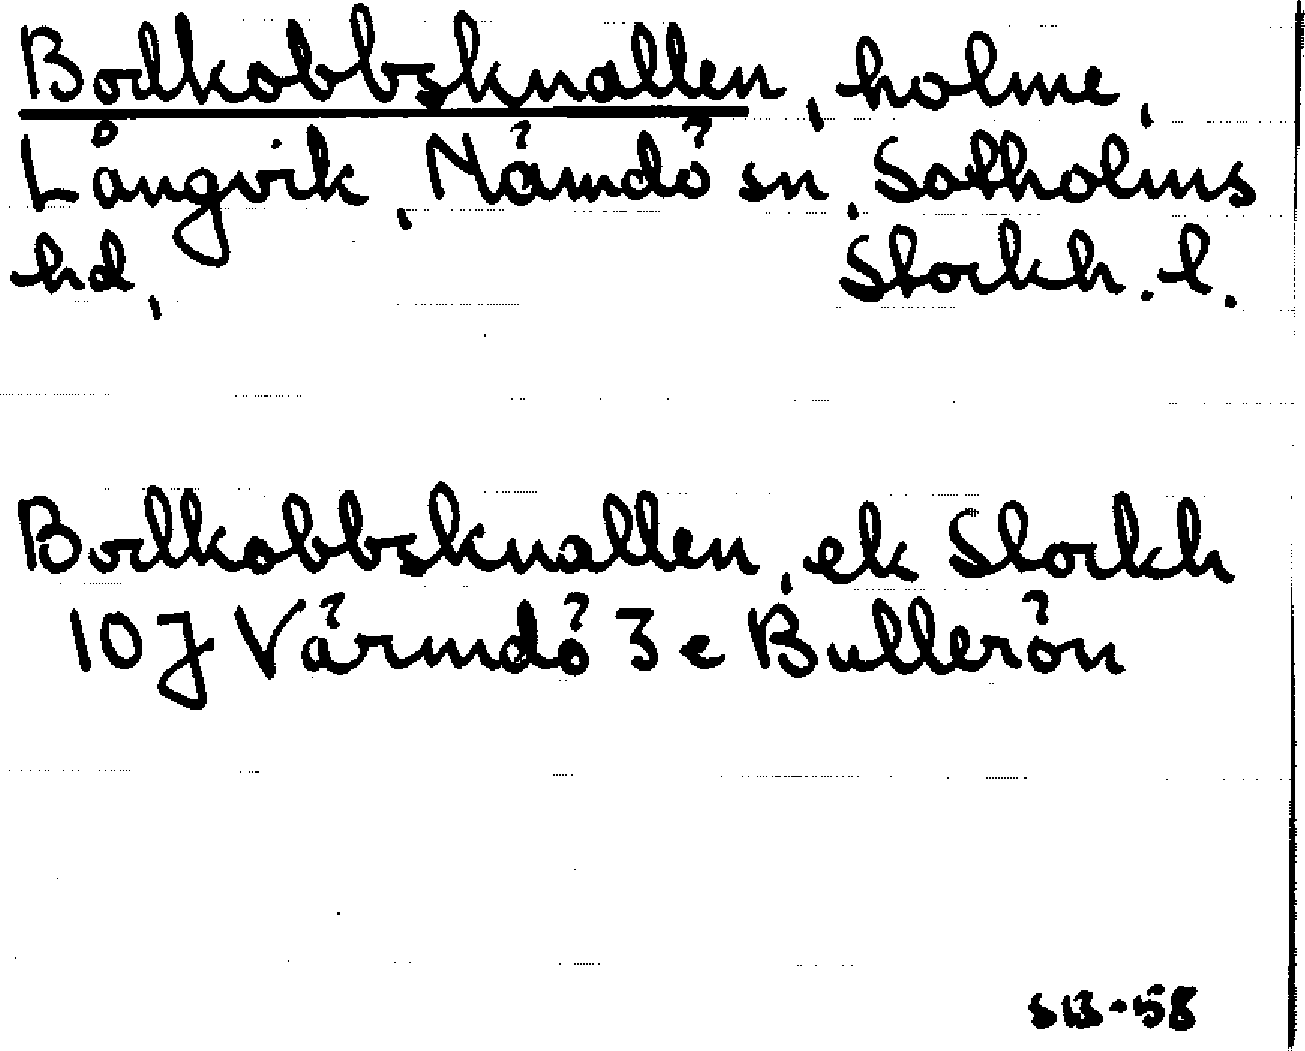 Bodkobbsknallen, holme,
Långvik, Nämdö sn, Sotholms
hd, Stockh. l.
Bodkobbsknallen, ek Stockh
10J Värmdö 3e Bullerön
SB-58